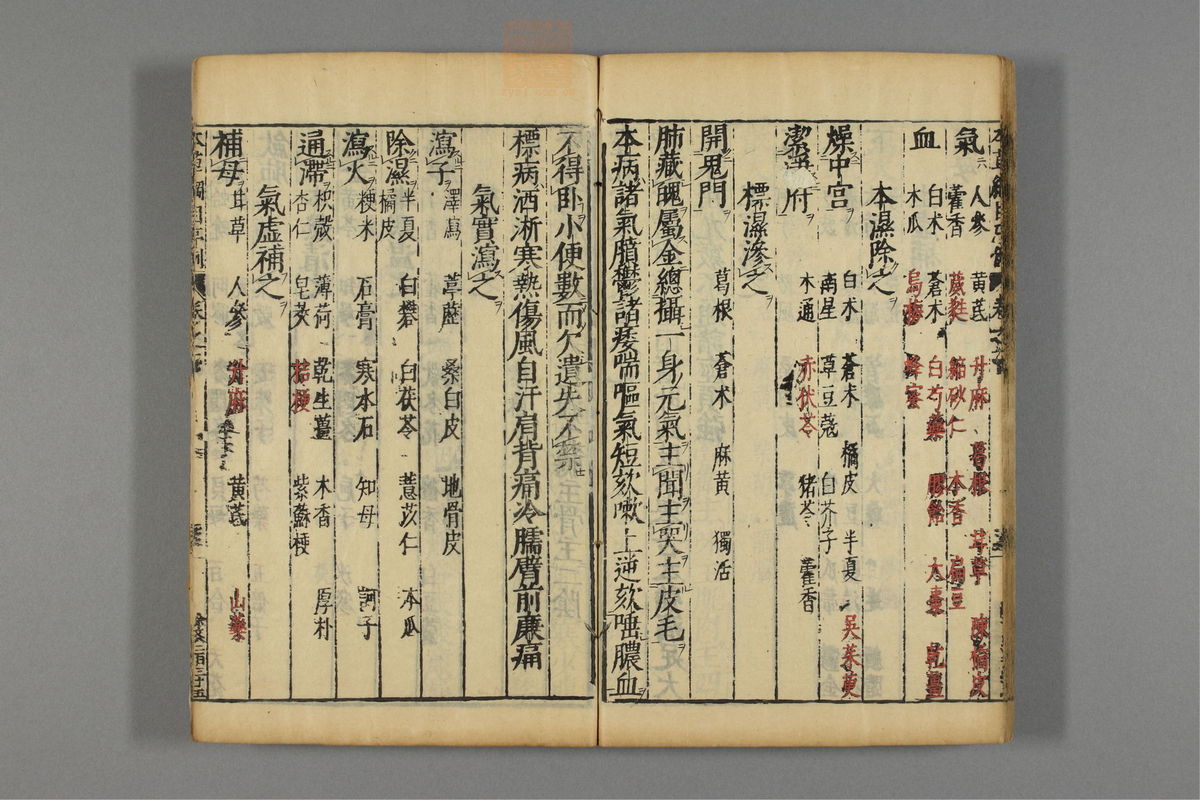 氣 人參 黃芪 升麻 葛根 甘草 陳橘皮
藿香 葳蕤 縮砂仁 木香 扁豆
血 白术 蒼术 白芍藥 膠飴 大棗 乾薑
木瓜 烏梅 蜂蜜
本濕除之
燥中宮 白术 蒼术 橘皮 半夏 吳茱萸
南星 草豆蔻 白芥子
潔淨府 木通 赤伏苓 猪苓 藿香
標濕滲之
開鬼門 葛根 蒼术 麻黃 獨活
肺藏魄屬金總攝一身元氣主聞主哭主皮毛
本病諸氣膹鬱諸痿喘嘔氣短欬嗽上逆欬唾膿血
不得卧小便數而欠遺失不禁
標病洒淅寒熱傷風自汗肩背痛冷臑臂前廉痛
氣實瀉之
瀉子 澤瀉 葶藶 桑白皮 地骨皮
除濕 半夏 白礬 白茯苓 薏苡仁 木瓜
橘皮
瀉火 粳米 石膏 寒水石 知母 訶子
通滯 枳殼 薄荷 乾生薑 木香 厚朴
杏仁 皂莢 桔梗 紫蘇梗
氣虛補之
補母 甘草 人參 升麻 黃芪 山藥